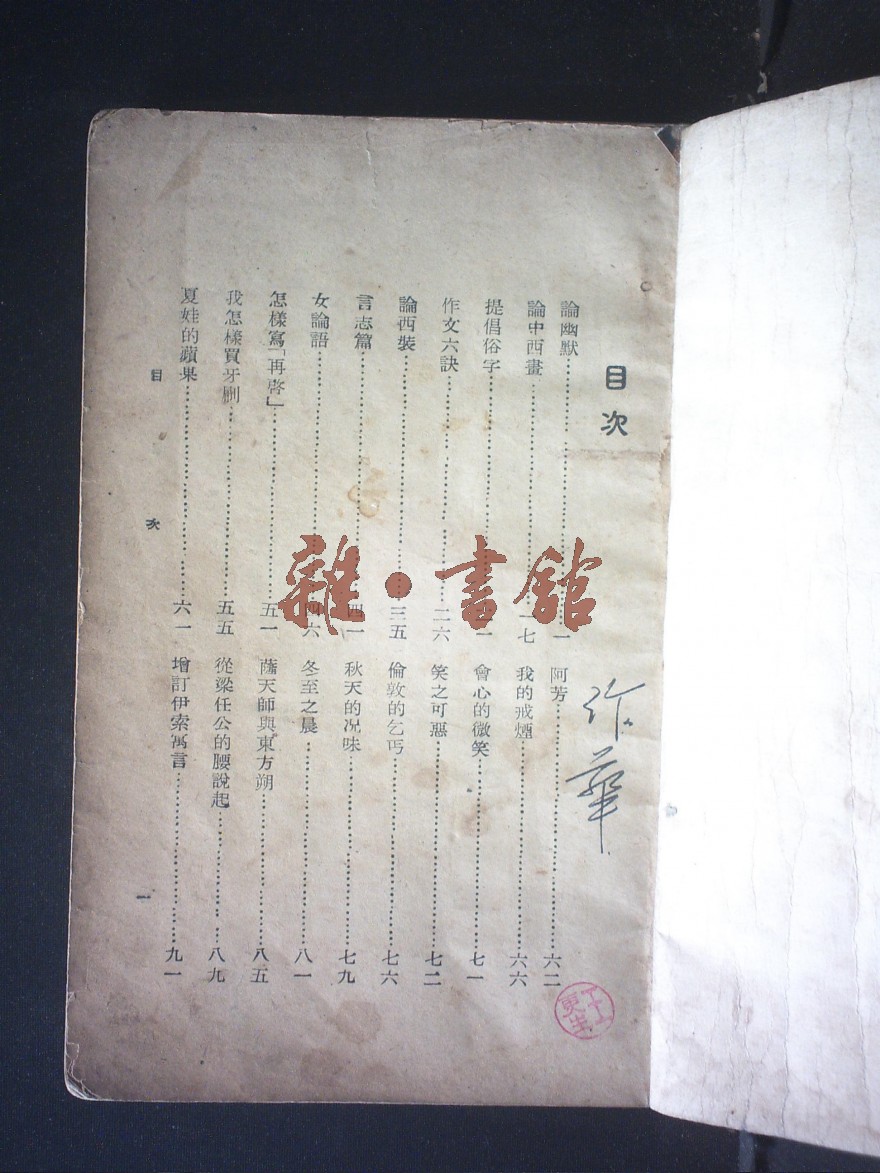 目次
論幽默⋯⋯一
論中西畫⋯⋯一七
提倡俗字⋯⋯一
作文六訣⋯⋯二六
論西裝⋯⋯三五
言志篇⋯⋯四一
女論語⋯⋯四六
怎樣寫「再啓」⋯⋯五一
我怎樣買牙刷⋯⋯五五
夏娃的蘋果⋯⋯六一
阿芳⋯⋯六二
我的戒煙⋯⋯六六
會心的微笑⋯⋯七一
笑之可惡⋯⋯七二
倫敦的乞丐⋯⋯七六
秋天的况味⋯⋯七九
冬至之晨⋯⋯八一
薩天師與東方朔⋯⋯八五
從梁任公的腰說起⋯⋯八九
增訂伊索寓言⋯⋯九一
目次
一
雜·書館